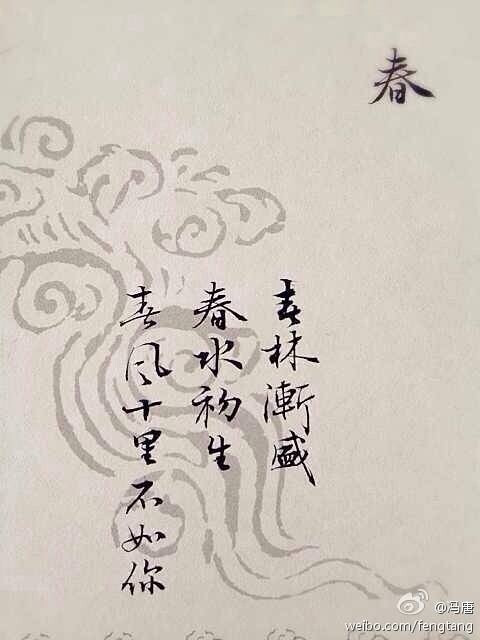 春
春林漸盛
春水初生
春风十里不如你
@冯唐
weibo.com/fengtang